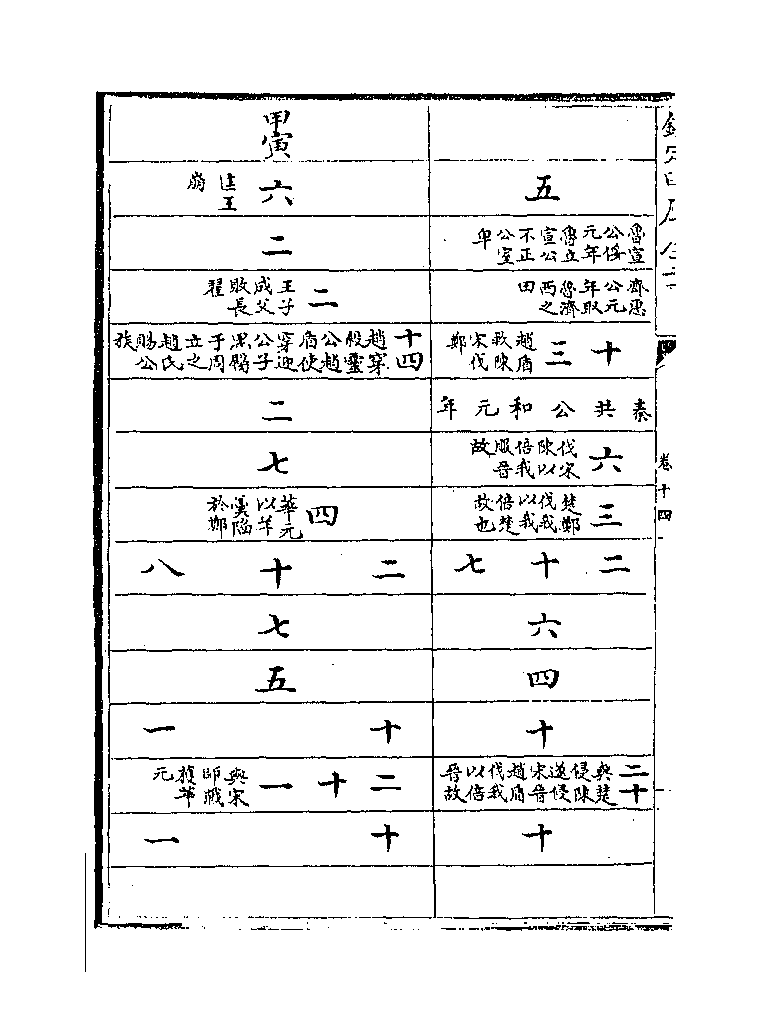 卷十四
五
魯宣公俀元年魯立宣公不正公室卑
齊惠公元年取魯濟西之田
十三 趙盾救陳宋伐鄭
秦共公和元年
六 伐宋陳以倍我服晉故
三 楚鄭伐我以我倍楚故也
二十七
六
四
十
二十 與楚侵陳遂侵宋晉趙盾伐我以倍晉故
十
甲寅
六 匡王崩
二
二 王子成父敗長翟
十四 趙穿殺靈公趙盾使穿迎公子黑臋于周立之趙氏賜公族
二
七
四 華元以羊羹陷於鄭
二十八
七
五
十一
二十一 與宋師戰獲華元
十一